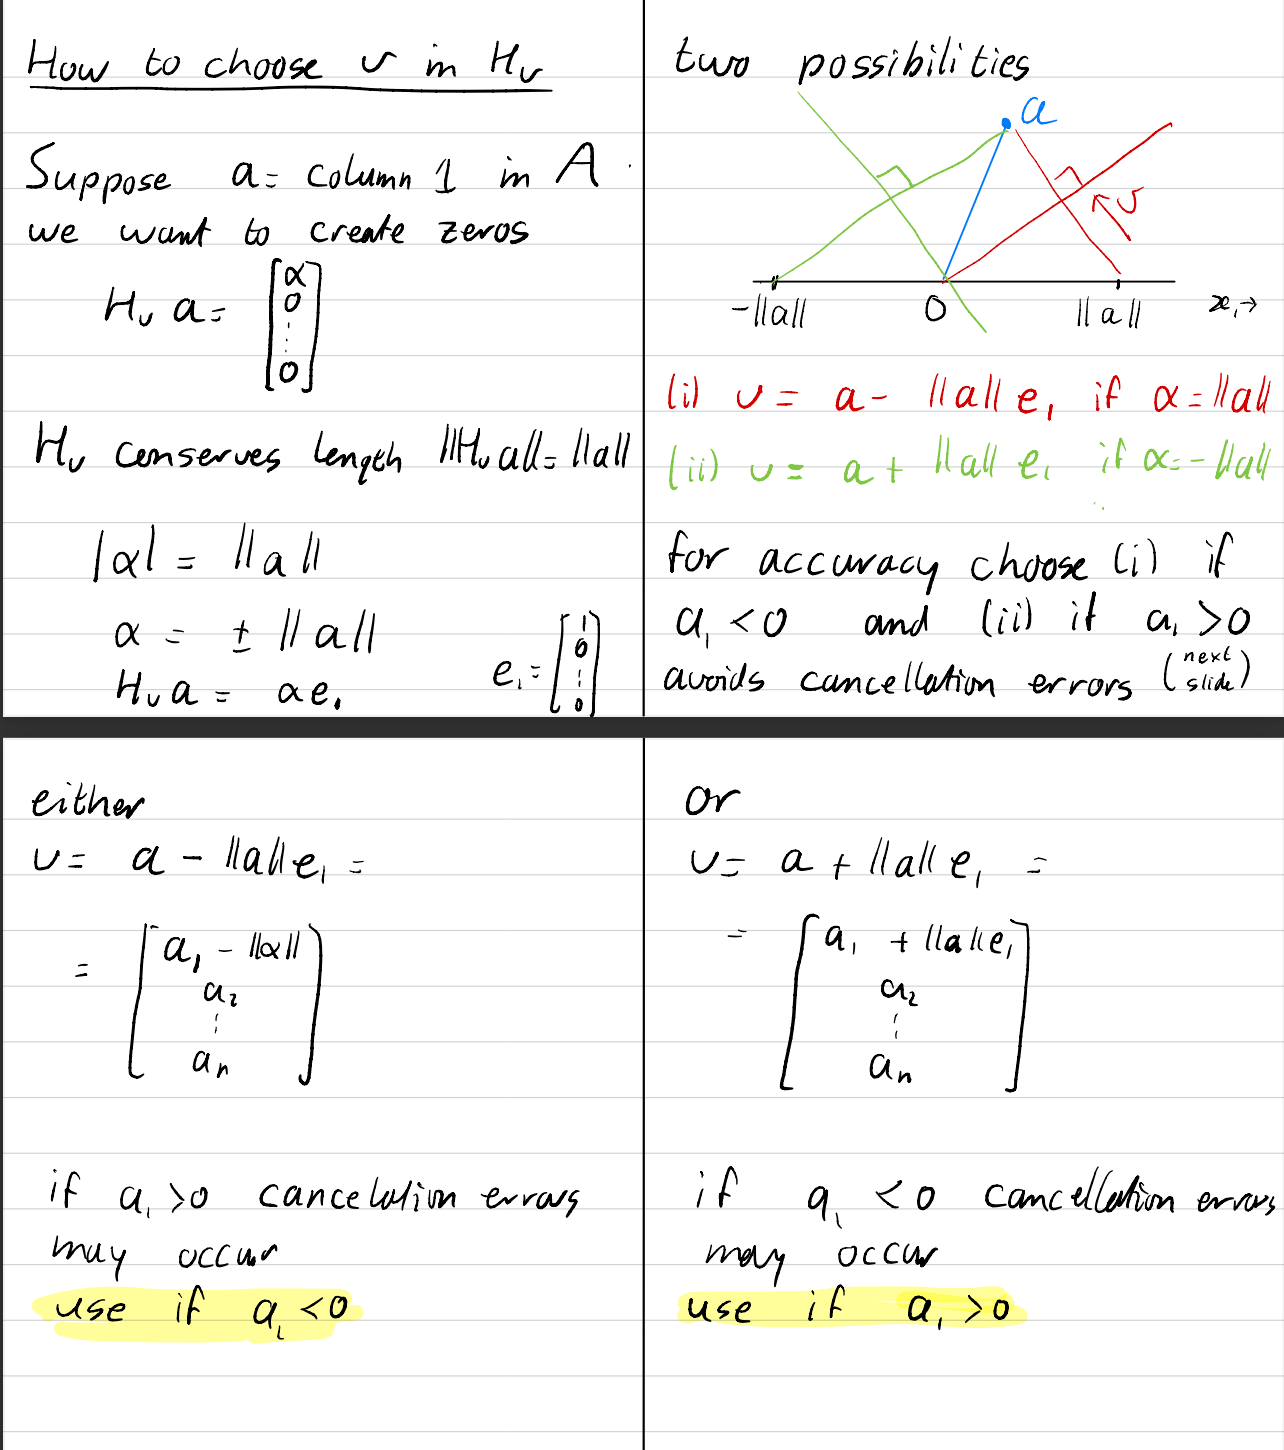 How to choose v in Hᵥ
Suppose a = column 1 in A
we want to create zeros
Hᵥ a = [α 0 ⋮ 0]
Hᵥ conserves length ||Hᵥ a|| = ||a||
|α| = ||a||
α = ± ||a||
Hᵥ a = αe₁
e₁ = [1 0 ⋮ 0]
two possibilities
a
v
-||a|| 0 ||a|| x₁→
(i) v = a - ||a|| e₁ if α = ||a||
(ii) v = a + ||a|| e₁ if α = -||a||
for accuracy choose (i) if
a₁ < 0 and (ii) if a₁ > 0
avoids cancellation errors (next slide)
either
v = a - ||a|| e₁ =
= [a₁ - ||α|| a₂ ⋮ aₙ]
if a₁ > 0 cancelation errors
may occur
use if a₁ < 0
or
v = a + ||a|| e₁ =
= [a₁ + ||a|| e₁ a₂ ⋮ aₙ]
if a₁ < 0 cancellation errors
may occur
use if a₁ > 0